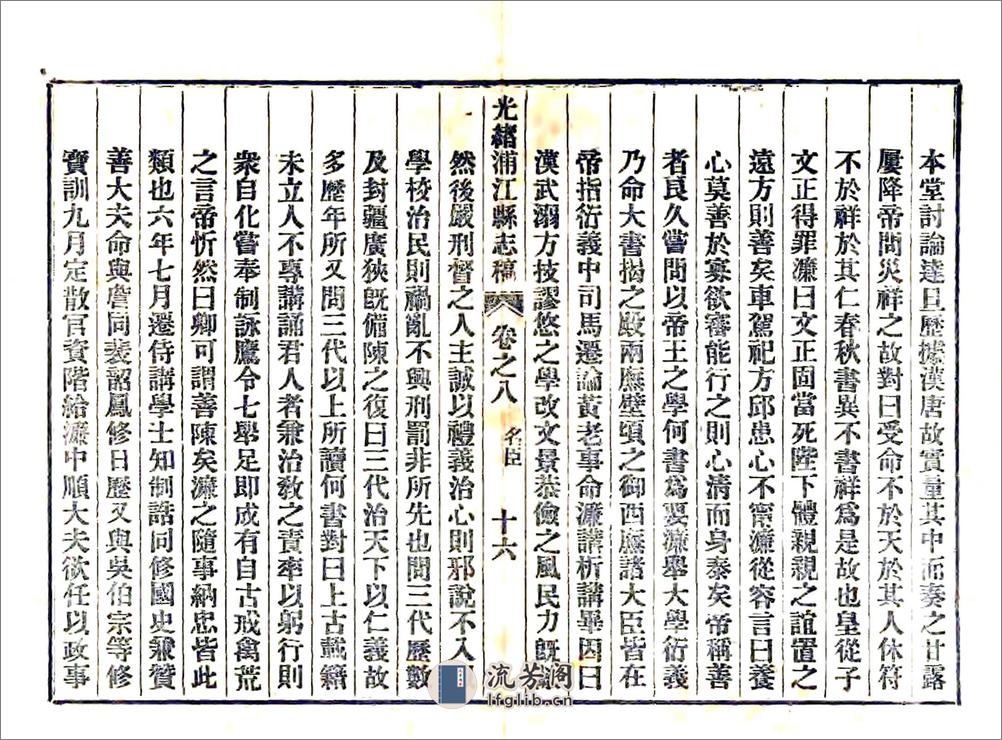 本堂討論達旦歷據漢唐故實量其中而奏之甘露
屢降帝問災祥之故對曰受命不於天於其人休符
不於祥於其仁春秋書異不書祥爲是故也皇從子
文正得罪濂曰文正固當死陛下體親親之誼置之
遠方則善矣車駕祀方邱患心不甯濂從容言曰養
心莫善於寡欲審能行之則心清而身泰矣帝稱善
者良久嘗問以帝王之學何書爲要濂舉大學衍義
乃命大書揭之殿兩廡壁頃之御西廡諸大臣皆在
帝指衍義中司馬遷論黃老事命濂講析講畢因曰
漢武溺方技謬悠之學改文景恭儉之風民力既
光緒浦江縣志稿 卷之八 名臣 十六
然後嚴刑督之人主誠以禮義治心則邪說不入
學校治民則禍亂不興刑罰非所先也問三代歷數
及封疆廣狹既備陳之復曰三代治天下以仁義故
多歷年所又問三代以上所讀何書對曰上古載籍
未立人不專講誦君人者兼治教之責率以躬行則
衆自化嘗奉制詠鷹令七舉足卽成有自古戒禽荒
之言帝忻然曰卿可謂善陳矣濂之隨事納忠皆此
類也六年七月遷侍講學士知制誥同修國史兼贊
善大夫命與詹同裴韶鳳修日歷又與吳伯宗等修
寶訓九月定散官資階給濂中順大夫欲任以政事
流芳閣
lfglib.cn